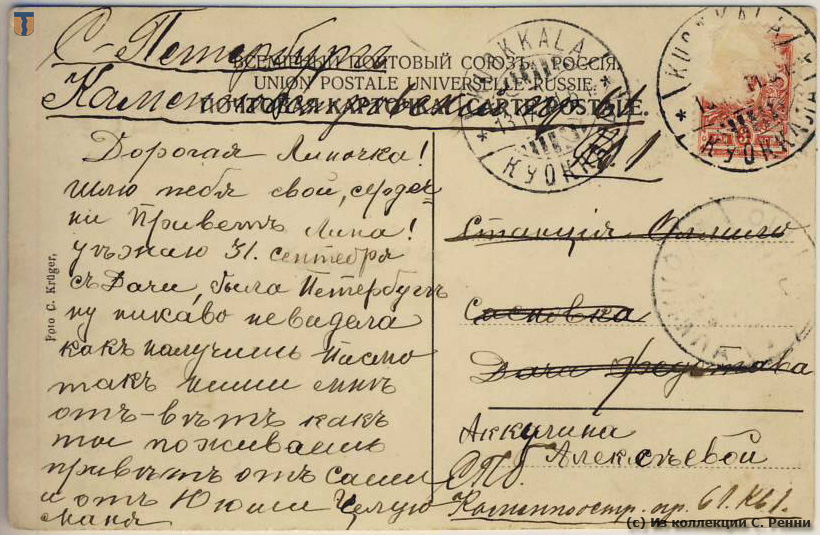 С-Петербургъ
ВСЕМІРНЫЙ ПОЧТОВЫЙ СОЮЗЪ. РОССІЯ.
UNION POSTALE UNIVERSELLE. RUSSIE.
ПОЧТОВАЯ КАРТОЧКА. CARTE POSTALE.
KUOKKALA
КУОККАЛА
KUOKKALA
КУОККАЛА
Дорогая Линочка!
Шлю тебя свой, сердеч
ни Приветъ Лина!
уъзжаю 31. сентебря
съ Дачи, была Петербугъ
ну никаво невидела
какъ получишь писмо
такъ пиши мнъ
отъ-вътъ какъ
ты поживаешь
привътъ отъ Саши
и отъ Ююши Целую
Маня
Фото C. Krüger,
Станція
Сосновка
Дача
Аккулина
Алексъевой
СПб.
Каменноостр. пр. 61. кв. 1.
(c) Из коллекции С. Ренни